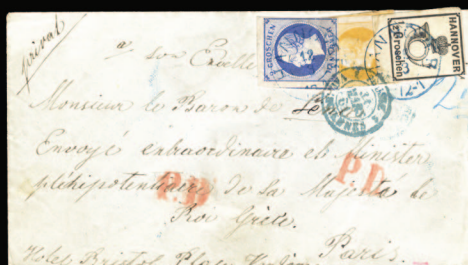 privat
a son Excelle
Monsieur le Baron de
Envoyé extraordinaire et Minister
plénipotentiaire de Sa Majesté de
Roi Grèce.
Paris.
Hotel Bristol Place
GROSCHEN
HANNOVER
Groschen
P.D
P.D.